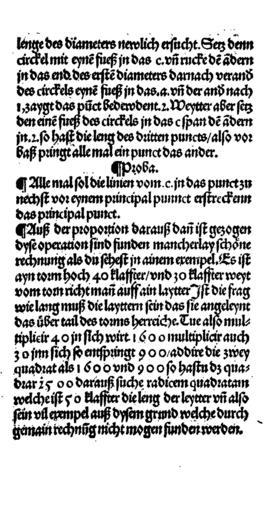 lenge des diameters newlich ersucht. Setz denn
circkel mit eynē fueß in das c. vñ rucke dē ādern
in das end des erstē diameters darnach verand
des circkels eynē fueß in das. a. vñ der and nach
1, zaygt das pūct bederodent. 2. Weytter aber setz
den einē fueß des circkels in das c span dē ādern
in. 2. so hast die leng des dritten puncts/also vor
baß pringt alle mal ein punct das ander.
¶ Proba.
¶ Alle mal sol die linien vom. c. in das punct zu
nechst vor eynem principal punnct erstrecken
das principal punct.
¶ Auß der proportion darauß dañ ist gezogen
dyse operation sind funden mancherlay schöne
rechnung als du sehest in ainem exempel. Es ist
ayn torm hoch 40 klaffter/vnd 30 klaffter weyt
vom torn richt man auff ain laytter Ist die frag
wie lang muß die layttern sein das sie angeleynt
das über tail des torns herreiche. Tue also mul-
tiplicir 40 in sich wirt 1600 multiplicir auch
30 inn sich so entspringt 900/addire die zwey
quadrat als 1600 vnd 900 so hastu dz qua-
drat 2500 darauß suche radicem quadratam
welche ist 50 klaffter die leng der leytter vñ also
sein vil exempel auß dysem grund welche durch
gemain rechnūg nicht mögen funden werden.